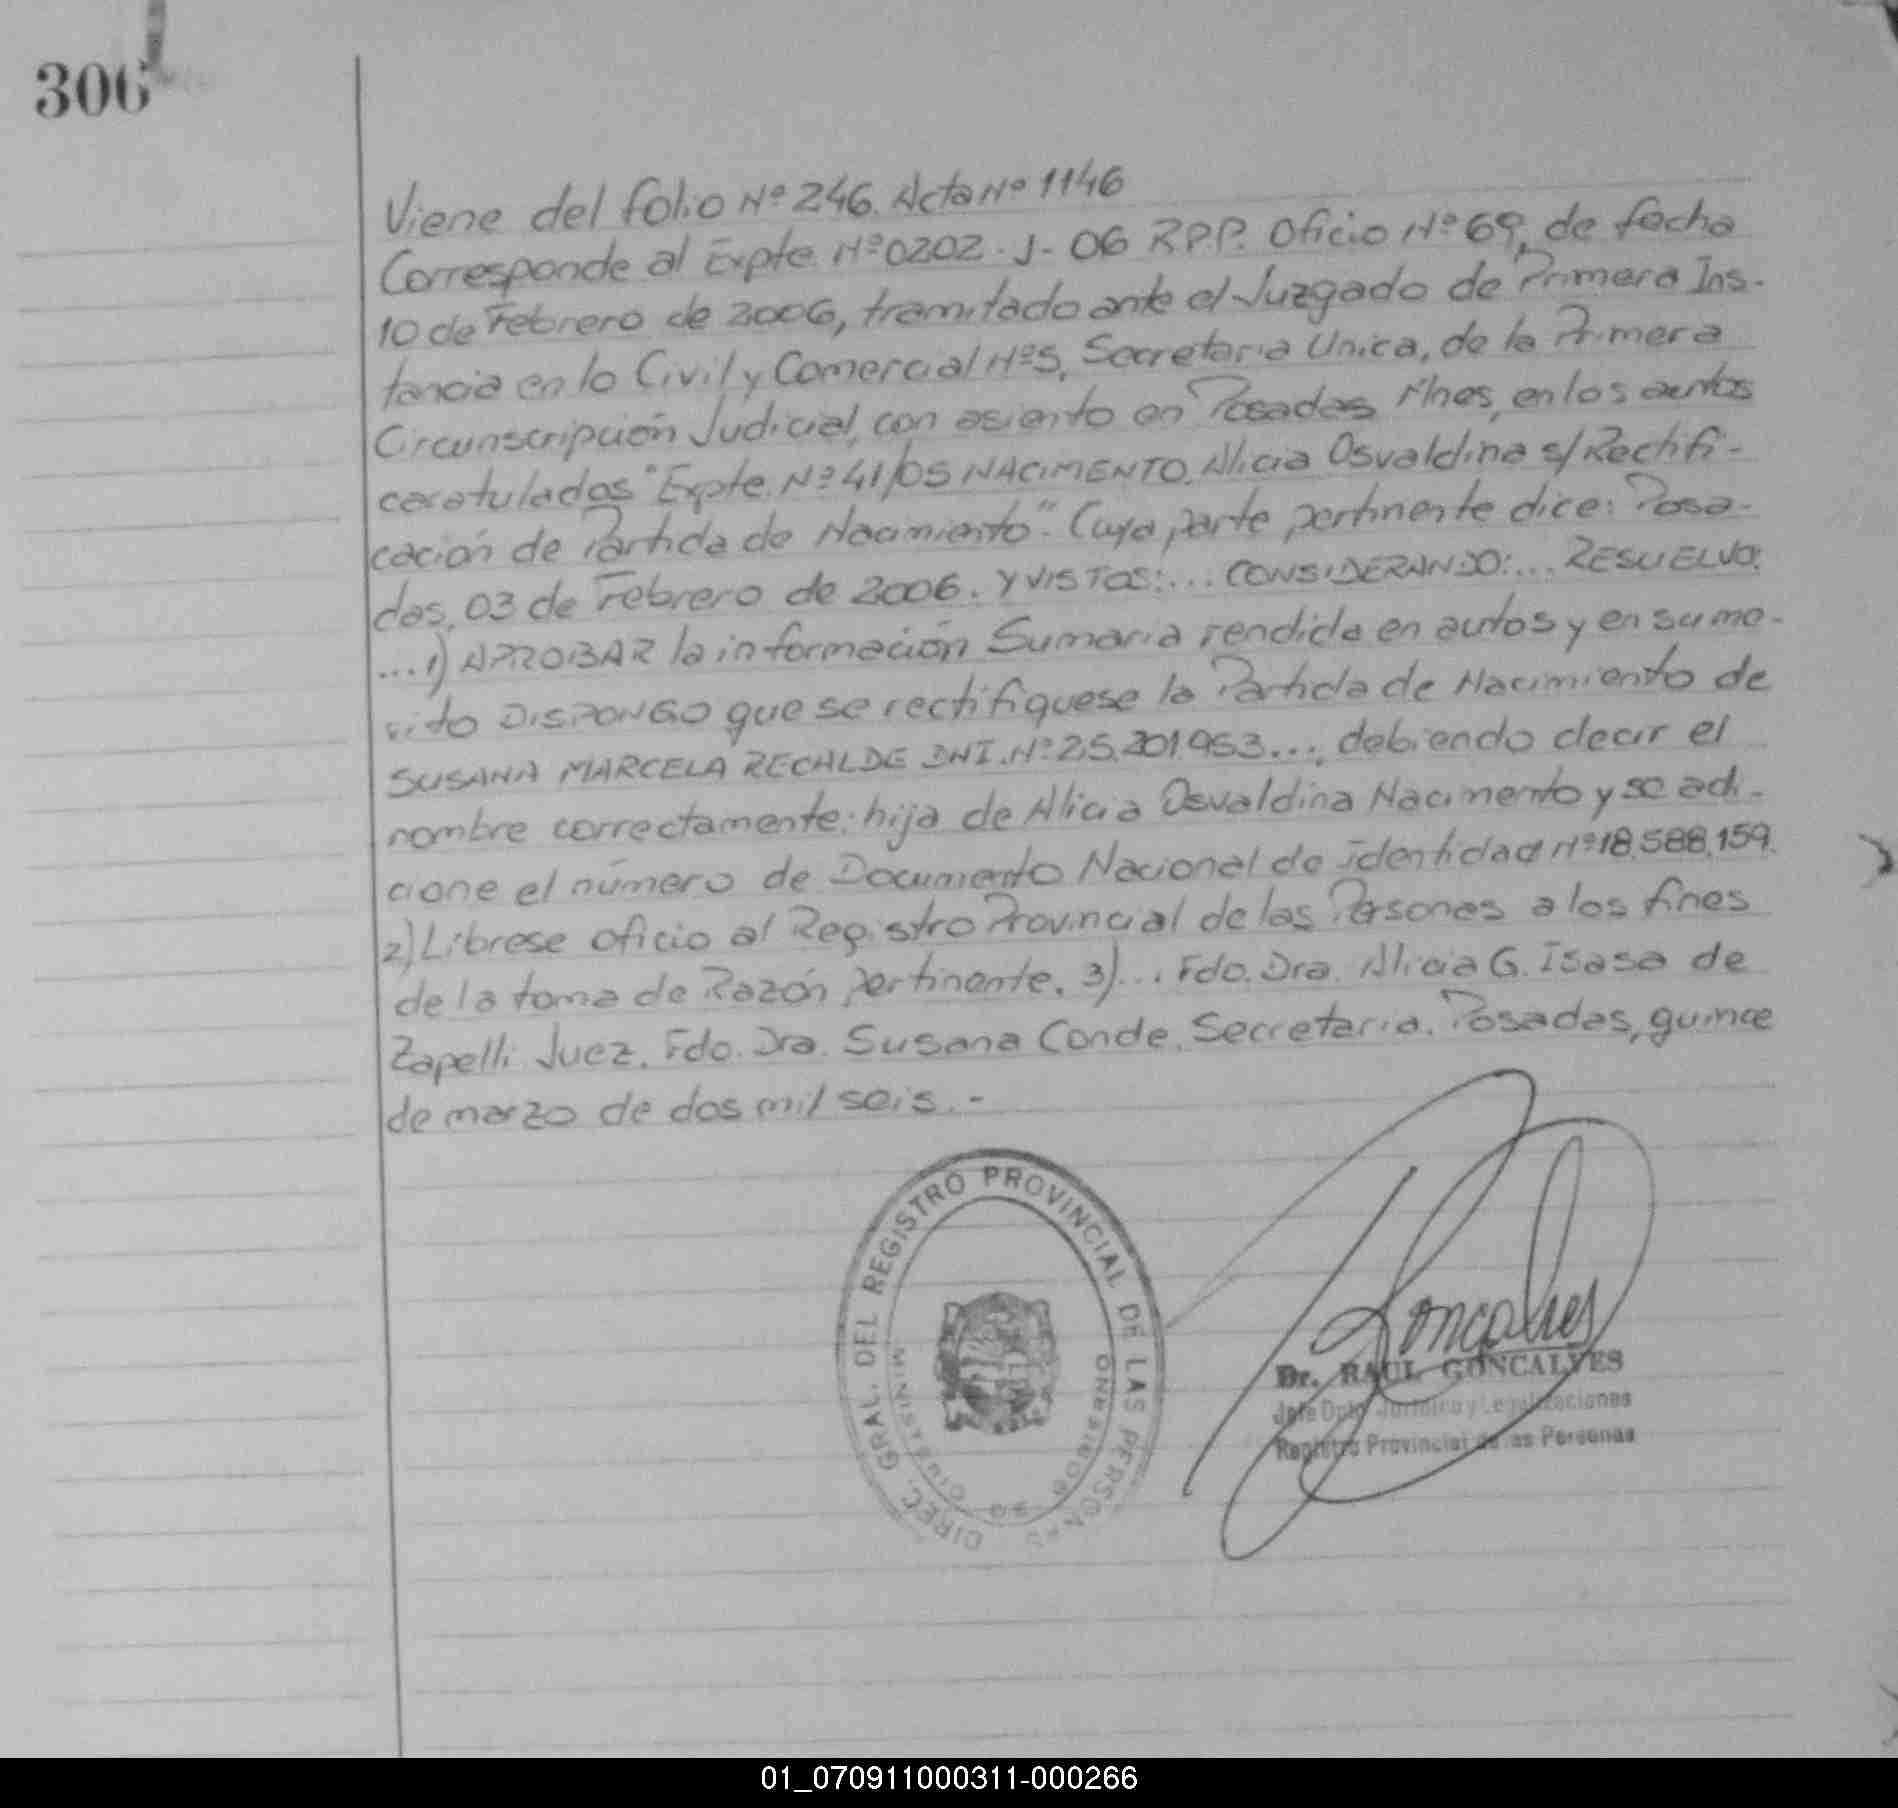 306
Viene del folio Nº 246. Acta Nº 1146
Corresponde al Expte Nº 0202-J-06 R.P.P. Oficio Nº 69, de fecha
10 de Febrero de 2006, tramitado ante el Juzgado de Primera Ins-
tancia en lo Civil y Comercial Nº 5, Secretaria Unica, de la Primera
Circunscripción Judicial, con asiento en Posadas Mnes, en los autos
caratulados "Expte. Nº 41/05 NACIMENTO. Alicia Osvaldina s/Rectifi-
cación de Partida de Nacimiento". Cuya parte pertinente dice: Posa-
das, 03 de Febrero de 2006. Y VISTOS:... CONSIDERANDO:... RESUELVO:
...1) APROBAR la información Sumaria rendida en autos y en su me-
rito DISPONGO que se rectifiquese la Partida de Nacimiento de
SUSANA MARCELA RECALDE DNI. Nº 25.201.953..., debiendo decir el
nombre correctamente: hija de Alicia Osvaldina Nacimento y se adi-
cione el número de Documento Nacional de identidad Nº 18.588.159.
2) Librese oficio al Registro Provincial de las Personas a los fines
de la toma de Razón pertinente. 3)... Fdo. Dra. Alicia G. Isasa de
Zapelli Juez. Fdo. Dra. Susana Conde. Secretaria. Posadas, quince
de marzo de dos mil seis.-
DIREC. GRAL. DEL REGISTRO PROVINCIAL DE LAS PERSONAS
MINISTERIO DE GOBIERNO
Goncalves
Dr. RAUL GONCALVES
Jefe Dpto Jurídico y Legalizaciones
Registro Provincial de las Personas
01_070911000311-000266